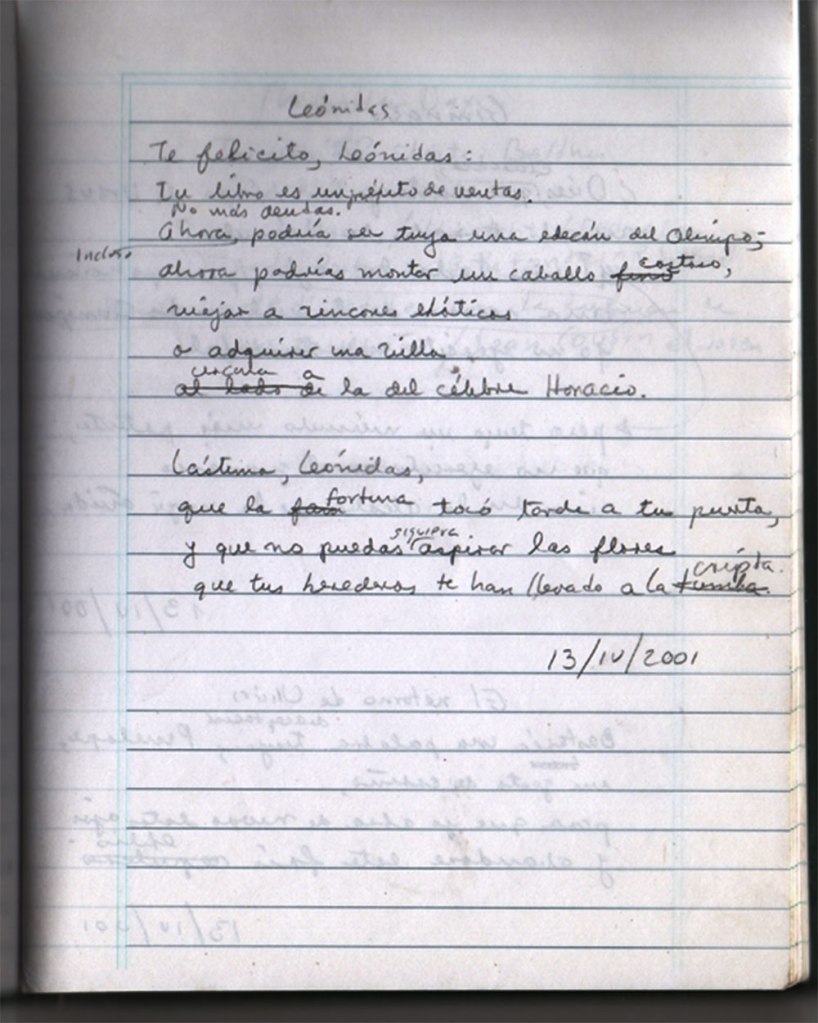 Leónidas
Te felicito, Leónidas:
Tu libro es un éxito de ventas.
No más deudas.
Ahora, podría ser tuya una edecán del Olimpo;
Incluso
ahora podrías montar un caballo fino costoso,
viajar a rincones exóticos
o adquirir una villa
cercana a
al lado de la del célebre Horacio.
Lástima, Leónidas,
que la fortuna tocó tarde a tu puerta,
siquiera
y que no puedas aspirar las flores
cripta.
que tus herederos te han llevado a la tumba.
13/IV/2001